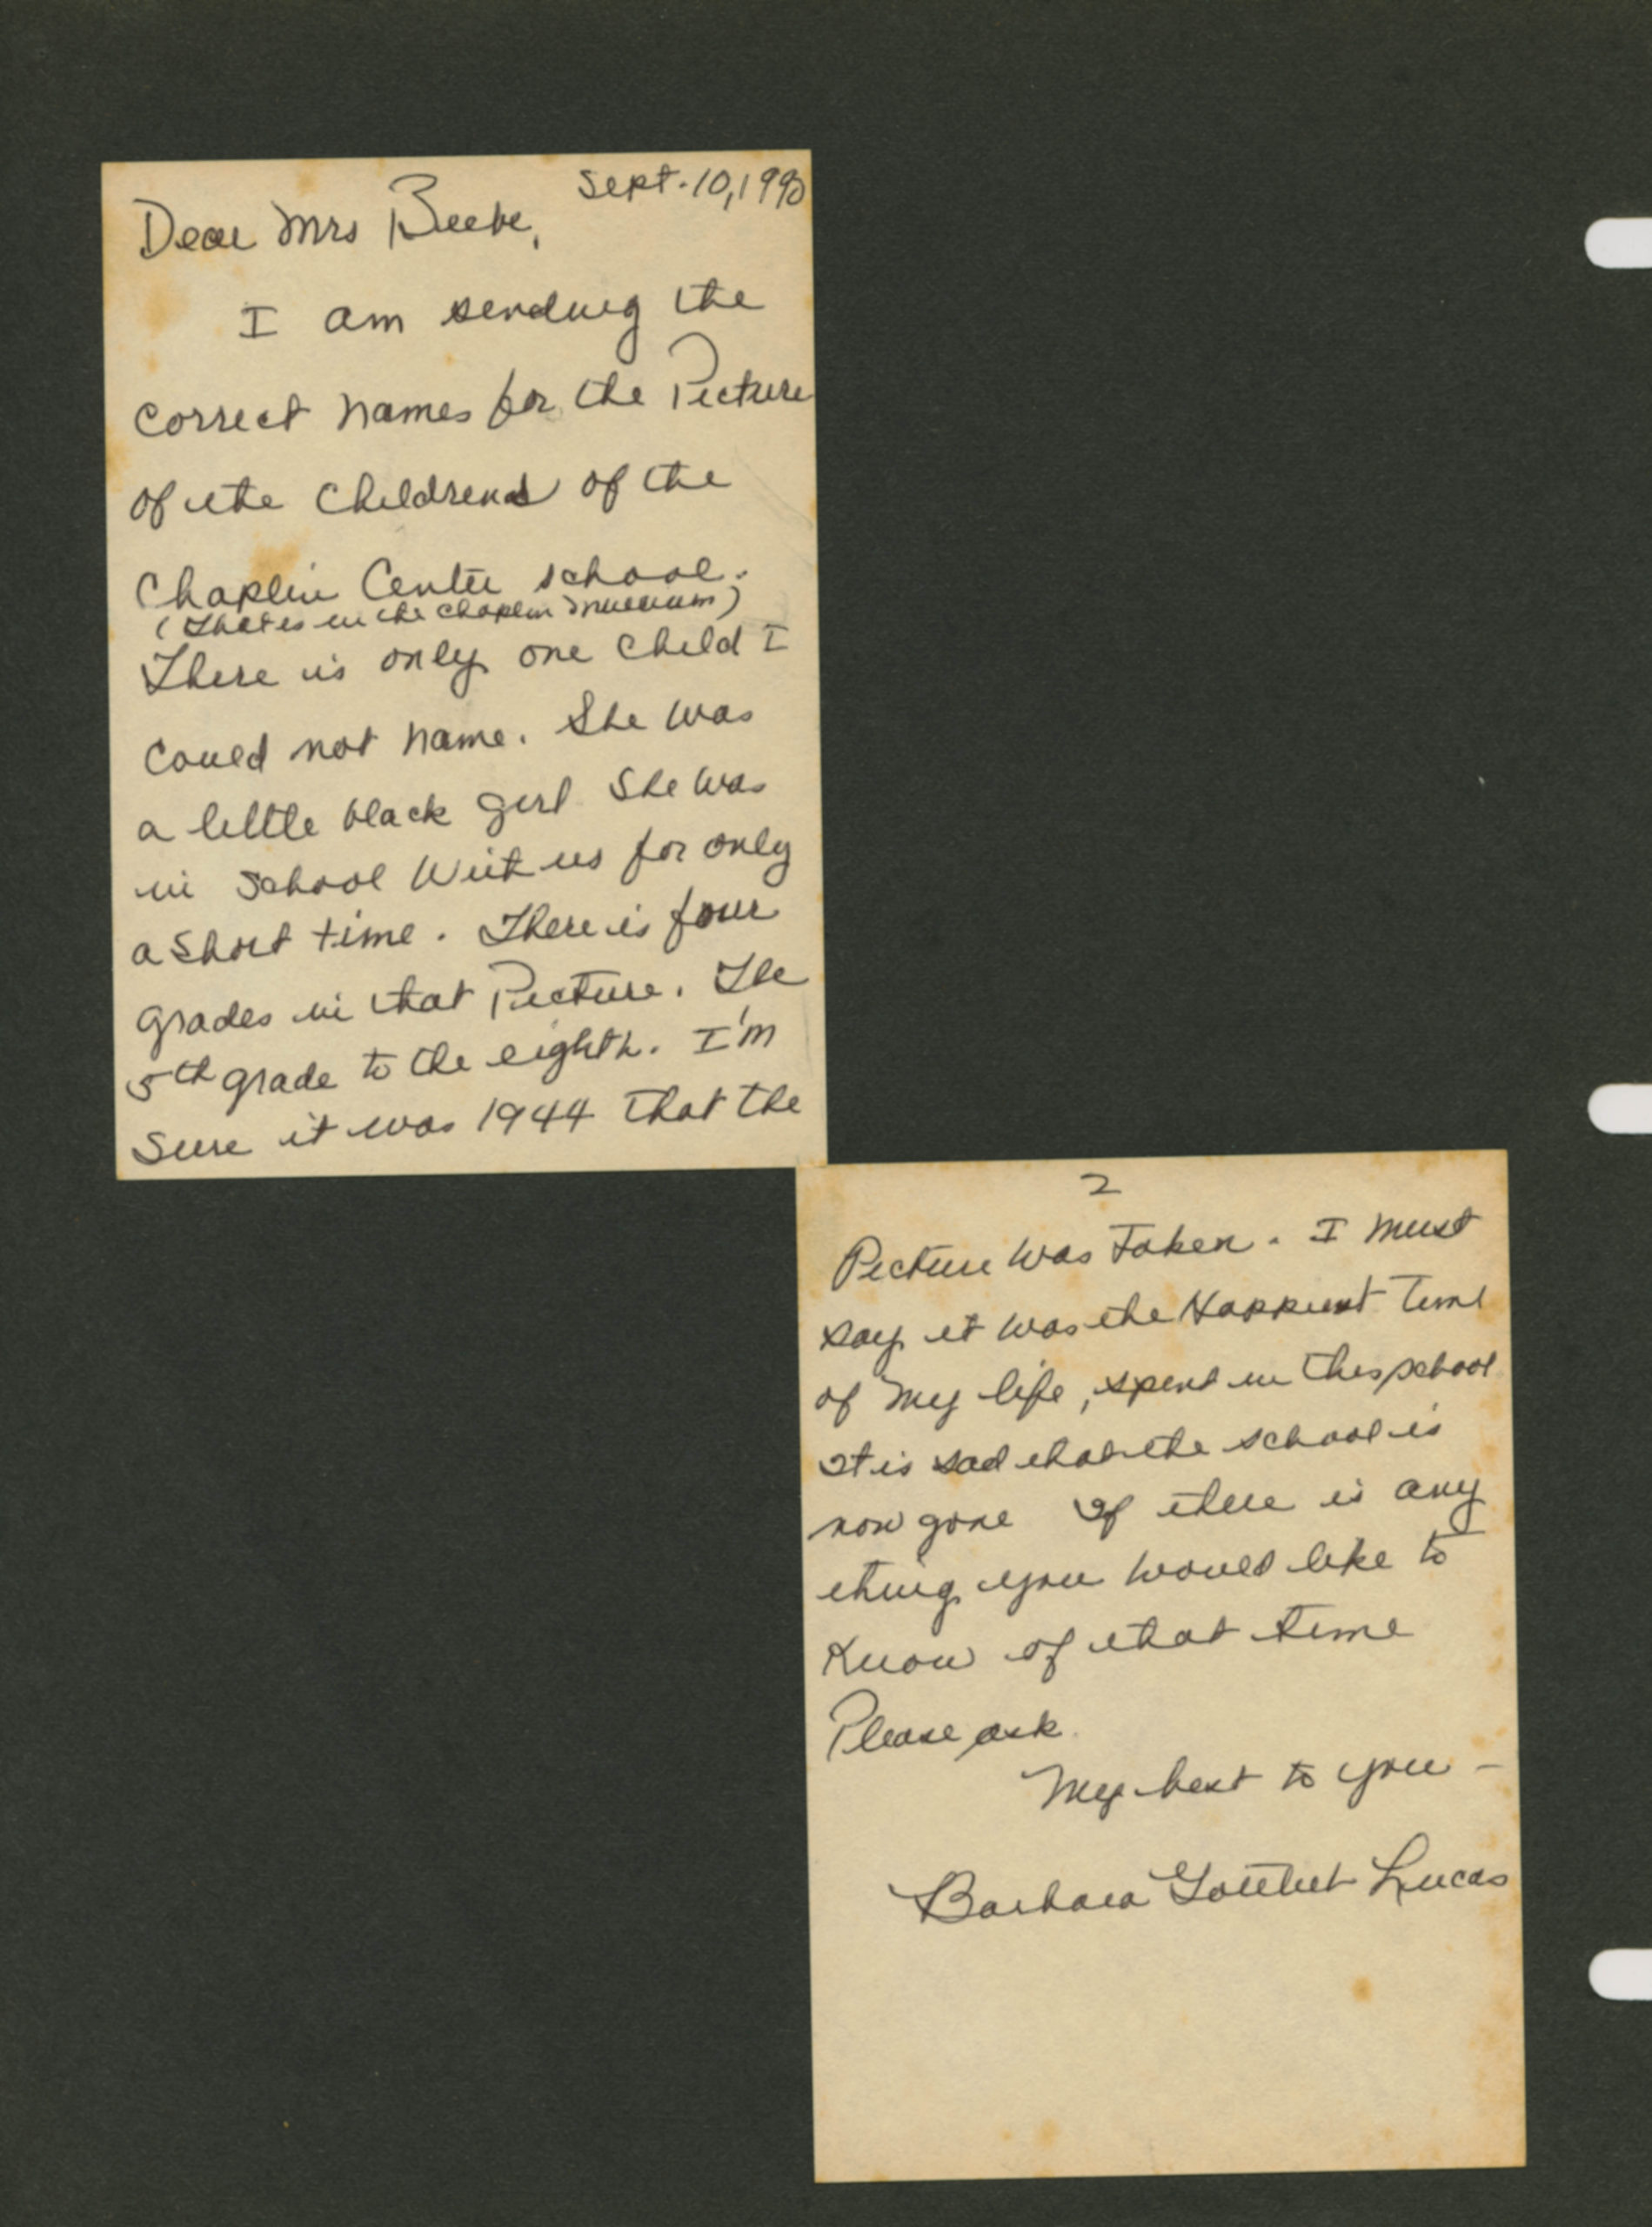 Sept. 10, 1990
Dear Mrs Beebe,
I am sending the
correct names for the Picture
of the Childrens of the
Chaplin Center school.
(That is in the Chaplin Museum)
There is only one Child I
could not name. She was
a little black girl She was
in School with us for only
a Short time. There is four
grades in that Picture. The
5th grade to the eighth. I'm
Sure it was 1944 that the
2
Picture was Taken. I must
say it was the Happiest Time
of my life, spent in this school
It is sad that the school is
now gone If there is any
thing you would like to
Know of that time
Please ask.
My best to you -
Barbara Lucas